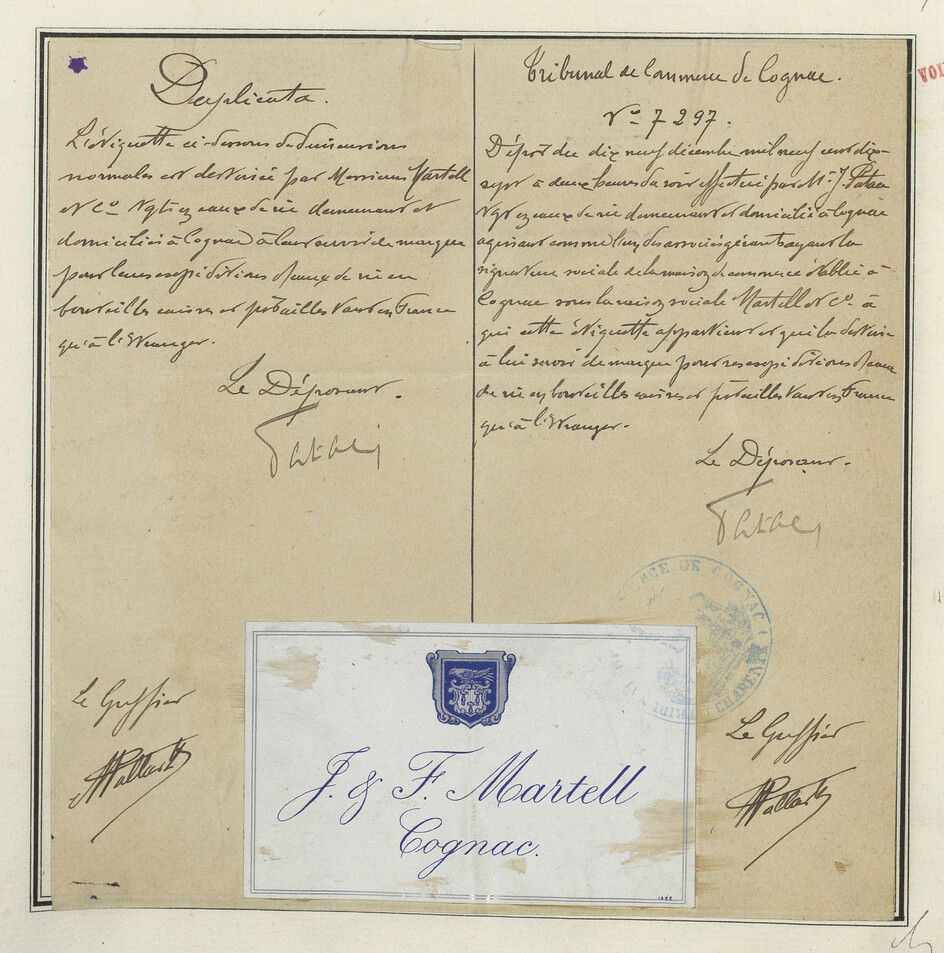 Duplicata.
L'étiquette ci-dessous de dimensions
normales est destinée par Messieurs Martell
et Co Ngts en eaux de vie demeurant et
domiciliés à Cognac à leur servir de marque
pour leurs expéditions d'eaux de vie en
bouteilles caisses et futailles tant en France
qu'à l'Etranger.
Le Déposant.
Le Greffier
Tribunal de Commerce de Cognac.
No 7297.
Dépôt du dix neuf décembre mil neuf cent dix-
sept à deux heures du soir effectué par Mr. J.
Ngt en eaux de vie demeurant et domicilié à Cognac
agissant comme l'un des associés gérants ayant la
signature sociale de la maison de commerce établie à
Cognac sous la raison sociale Martell et Co. à
qui cette étiquette appartient et qui la destine
à lui servir de marque pour ses expéditions d'eaux
de vie en bouteilles caisses et futailles tant en France
qu'à l'Etranger.
Le Déposant.
Le Greffier
J. & F. Martell
Cognac.